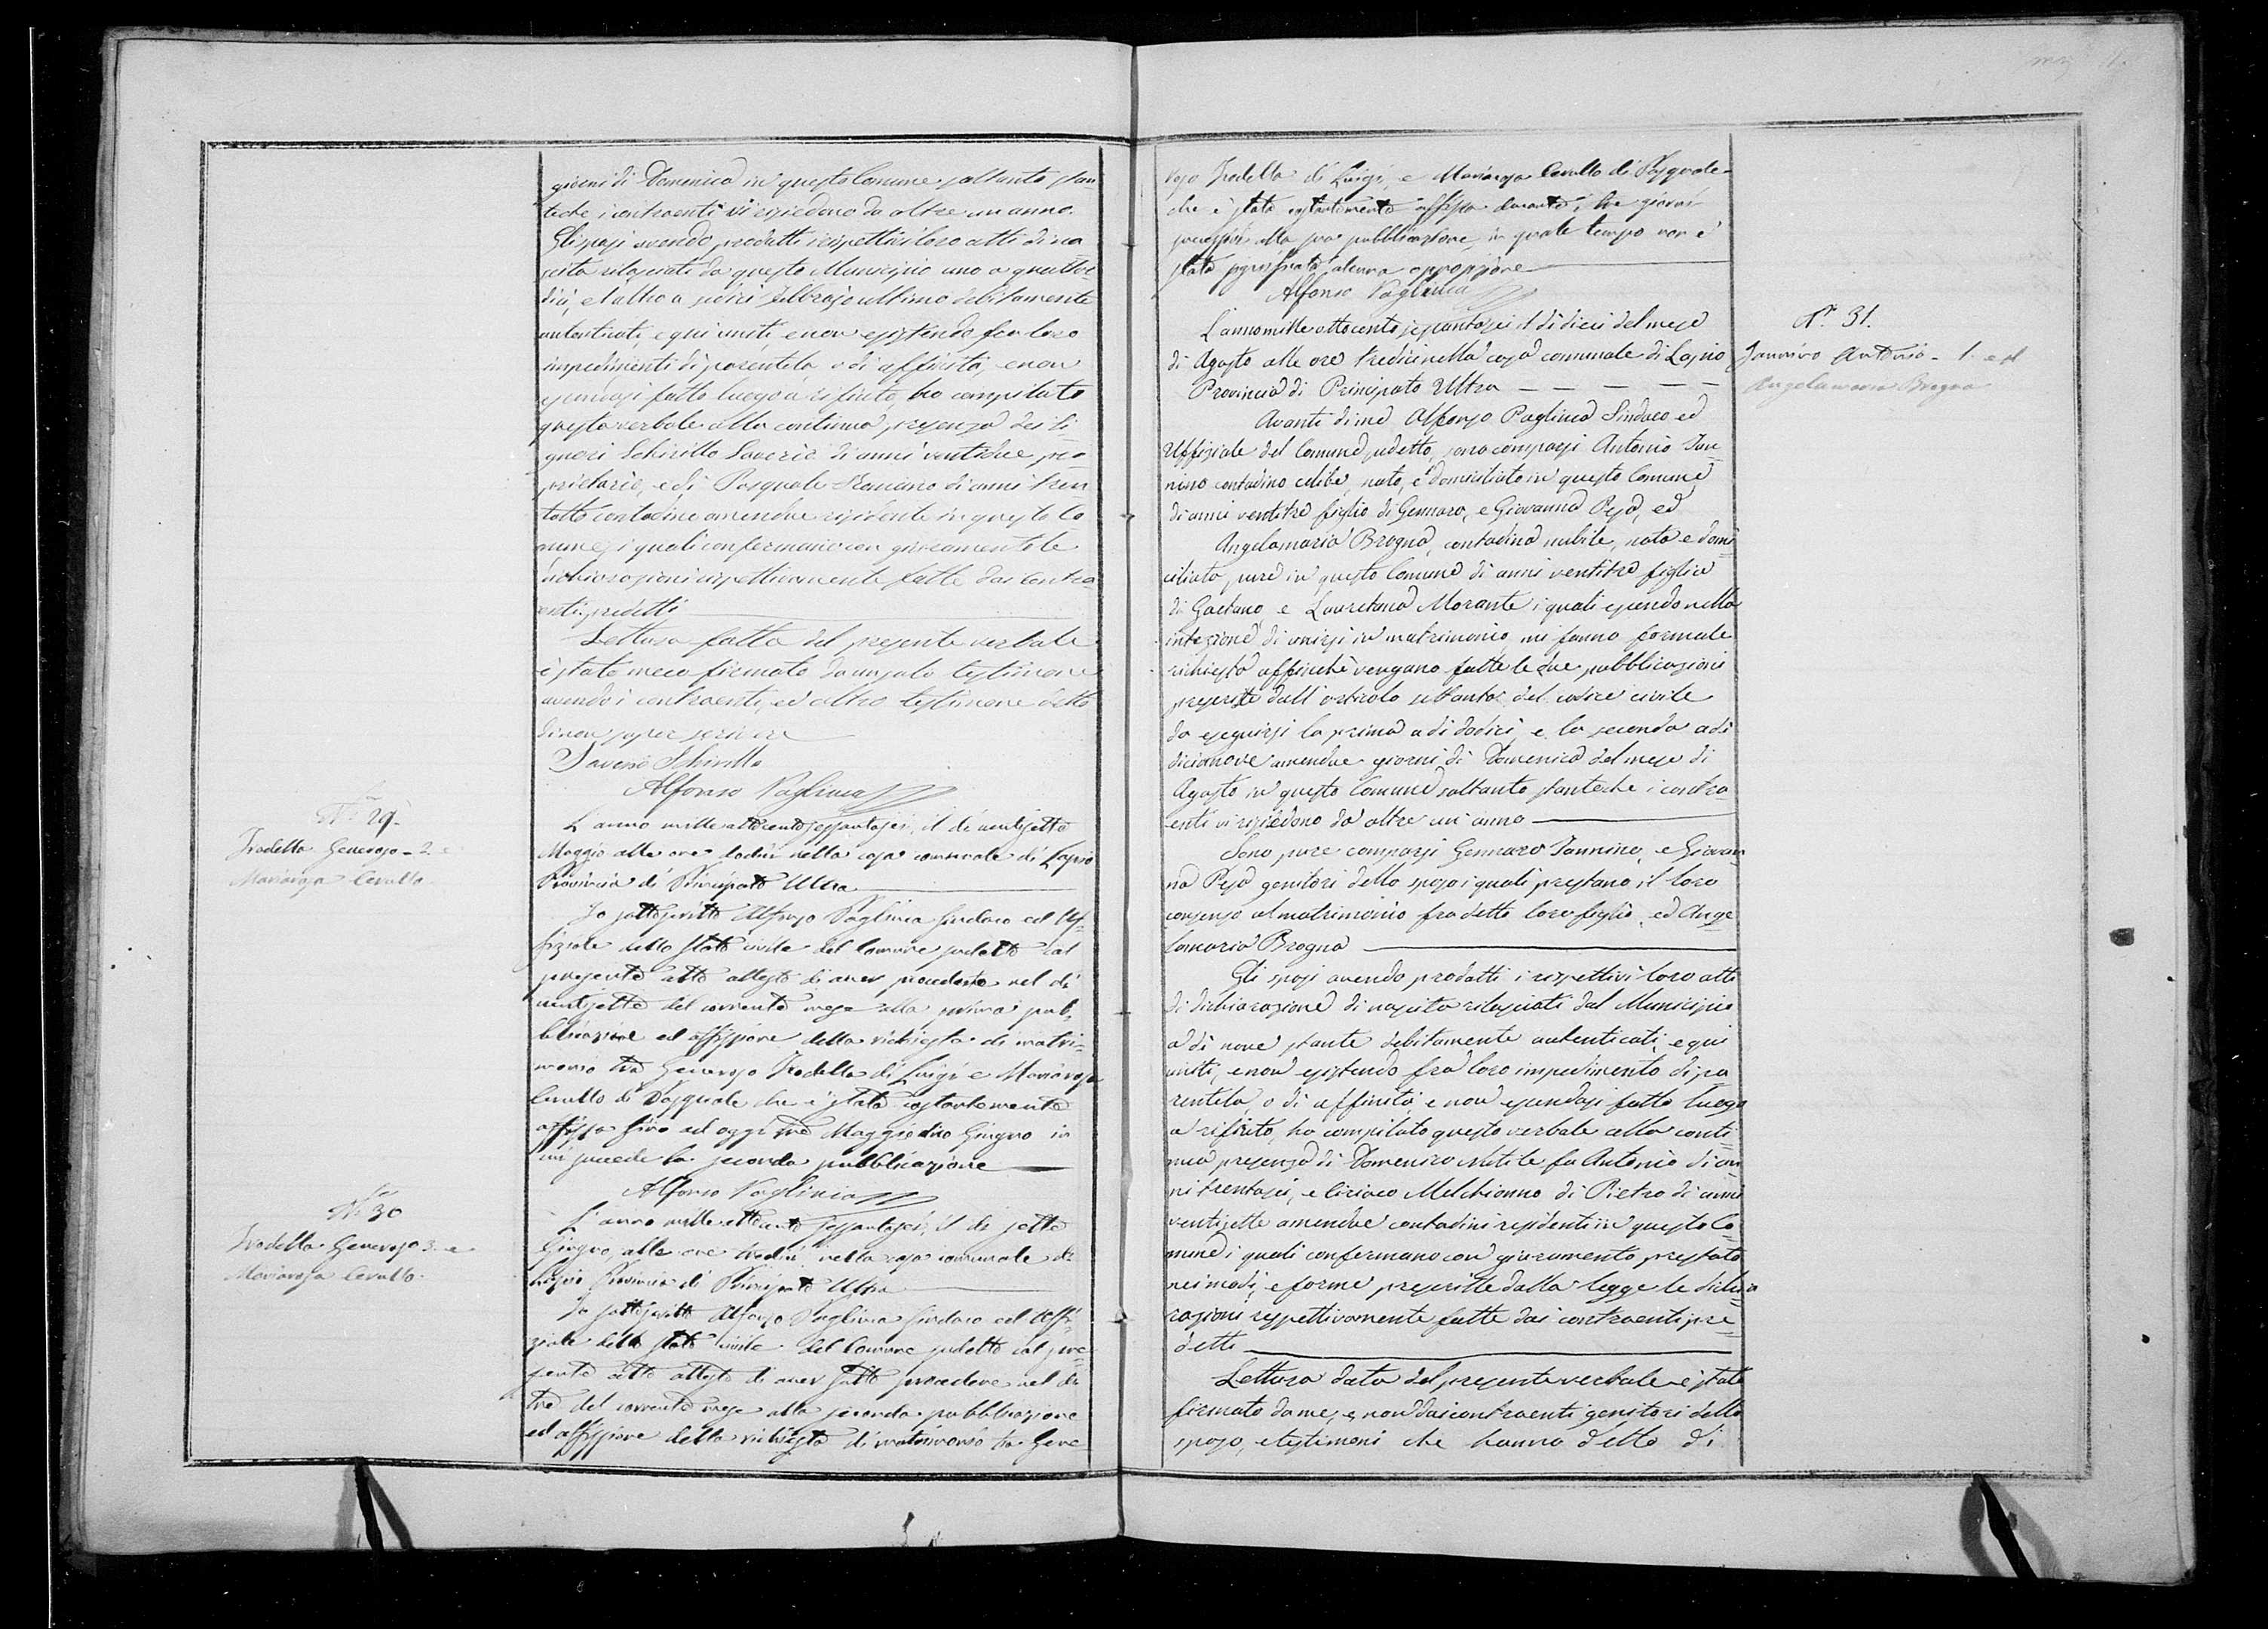 giorni di Domenica in questo Comune soltanto stan
teche i contraenti vi risiedono da oltre un anno.
Gli sposi avendo prodotti i rispettivi loro atti di na
scita rilasciati da questo Municipio uno a quattor
dici, e l'altro a sedici Febbrajo ultimo debitamente
autenticati, e qui uniti, e non esistendo fra loro
impedimenti di parentela o di affinità, e non
essendosi fatto luogo a rifiuto, ho compilato
questo verbale alla continua presenza dei Si
gnori Schirillo Saverio di anni ventidue pro
prietario, e di Pasquale Romano di anni tren
totto contadino amendue residente in questo Co
mune, i quali confermano con giuramento le
dichiarazioni rispettivamente fatte dai contra
enti predetti
Lettura fatta del presente verbale
è stato meco firmato da un solo testimone
avendo i contraenti, ed altro testimone detto
di non saper scrivere
Saverio Schirillo
Alfonso Paglinca
N. 29.
Iradella Generoso - 2. e
Mariarosa Cerullo
L'anno mille ottocento sessantasei, il di ventisette
Maggio alle ore dodici nella casa comunale di Lapio
Provincia di Principato Ultra
Io sottoscritto Alfonso Paglinca Sindaco ed Uf
fiziale dello Stato civile del Comune sudetto col
presente atto attesto di aver proceduto nel di
ventisette del corrente mese alla prima pub
blicazione ed affissione della richiesta di matri
monio tra Generoso Iradella di Luigi e Mariarosa
Cerullo di Pasquale che è stata costantemente
affissa fino ad oggi Giugno in
cui succede la seconda pubblicazione
Alfonso Paglinca
N. 30
Iradella Generoso 3. e
Mariarosa Cerullo.
L'anno mille ottocento sessantasei, il di sette
Giugno, alle ore tredici nella casa comunale di
Lapio Provincia di Principato Ultra
Io sottoscritto Alfonso Paglinca Sindaco ed Uffi
ziale dello stato civile del Comune sudetto col pre
sente atto attesto di aver fatto procedere nel di
tre del corrente mese alla seconda pubblicazione
ed affissione della richiesta di matrimonio tra Gene
roso Iradella di Luigi, e Mariarosa Cerullo di Pasquale
che è stata costantemente affissa durante i tre giorni
successivi alla sua pubblicazione, in quale tempo non è
stata alcuna opposizione
Alfonso Paglinca
N. 31.
Jannino Antonio - 1. ed
Angelamaria Brogna
L'anno mille ottocento sessantasei il di dieci del mese
di Agosto alle ore tredici nella casa comunale di Lapio
Provincia di Principato Ultra
Avanti di me Alfonso Paglinca Sindaco ed
Uffiziale del Comune sudetto, sono comparsi Antonio Jan
nino contadino celibe, nato, e domiciliato in questo Comune
di anni ventitre figlio di Gennaro, e Giovanna Pesa, ed
Angelamaria Brogna, contadina nubile, nata e domi
ciliata pure in questo Comune di anni ventitre figlia
di Gaetano, e Lauretana Morante i quali essendo nella
intezione di unirsi in matrimonio, mi fanno formale
richiesta affinchè vengano fatte le due pubblicazioni
prescritte dall'articolo settanta del codice civile
da eseguirsi la prima a di dodici, e la seconda a di
dicianove amendue giorni di Domenica del mese di
Agosto in questo Comune soltanto stanteche i contra
enti vi risiedono da oltre un' anno
Sono pure comparsi Gennaro Jannino, e Giovan
na Pesa genitori dello sposo i quali prestano il loro
consenso al matrimonio fra detto loro figlio, ed Ange
lamaria Brogna
Gli sposi avendo prodotti i rispettivi loro atti
di dichiarazione di nascita rilasciati dal Municipio
a di nove stante debitamente autenticati, e qui
uniti, e non esistendo fra loro impedimento di pa
rentela, o di affinità, e non essendosi fatto luogo
a rifiuto, ho compilato questo verbale alla conti
nua presenza di Domenico Natile fu Antonio di an
ni trentasei, e Ciriaco Melchionno di Pietro di anni
ventisette amendue contadini residenti in questo Co
mune i quali confermano con giuramento prestato
nei modi, e forme prescritte dalla legge le dichia
razioni rispettivamente fatte dai contraenti pre
detti
Lettura data del presente verbale è stato
firmato da me, e non dai contraenti genitori dello
sposo, e testimoni che hanno detto di